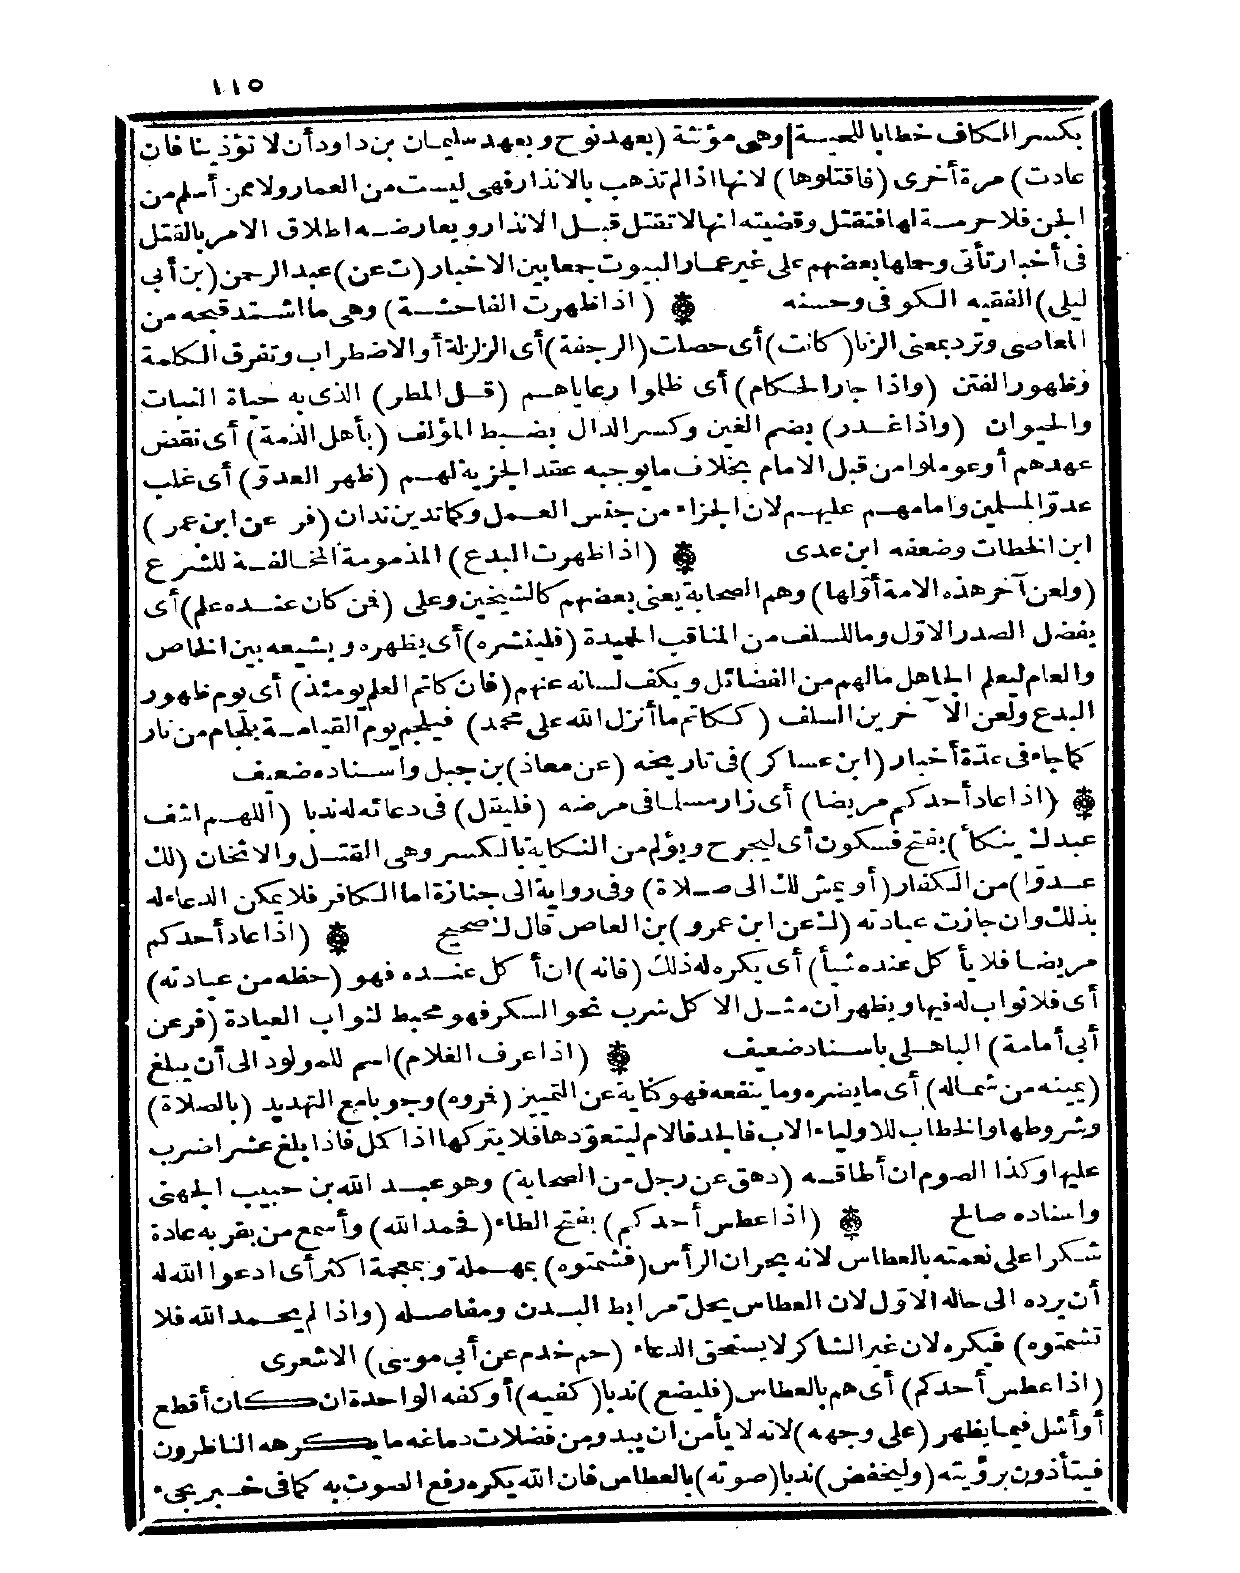 ١١٥
بكسر الكاف خطابا للحية وهى مؤنثة (بعهد نوح وبعهد سليمان بن داود أن لا تؤذينا فان
عادت) مرة أخرى (فاقتلوها) لانها اذا لم تذهب بالانذار فهى ليست من العمار ولا ممن أسلم من
الجن فلا حرمة لها فتقتل وقضيته انها لا تقتل قبل الانذار ويعارضه اطلاق الامر بالقتل
فى أخبار تأتى وحملها بعضهم على غير عمار البيوت جمعا بين الاخبار (ت عن) عبد الرحمن (بن أبى
ليلى) الفقيه الكوفى وحسنه ۞ (اذا ظهرت الفاحشة) وهى ما اشتد قبحه من
المعاصى وترد بمعنى الزنا (كانت) أى حصلت (الرجفة) أى الزلزلة أو الاضطراب وتفرق الكلمة
وظهور الفتن (واذا جار الحكام) أى ظلموا رعاياهم (قل المطر) الذى به حياة النبات
والحيوان (واذا غدر) بضم الغين وكسر الدال بضبط المؤلف (بأهل الذمة) أى نقض
عهدهم أو عوملوا من قبل الامام بخلاف ما يوجبه عقد الجزية لهم (ظهر العدوّ) أى غلب
عدوّ المسلمين وامامهم عليهم لان الجزاء من جنس العمل وكما تدين تدان (فر عن ابن عمر)
ابن الخطاب وضعفه ابن عدى ۞ (اذا ظهرت البدع) المذمومة المخالفة للشرع
(ولعن آخر هذه الامة أوّلها) وهم الصحابة يعنى بعضهم كالشيخين وعلى (فمن كان عنده علم) أى
بفضل الصدر الاوّل وما للسلف من المناقب الحميدة (فلينشره) أى يظهره ويشيعه بين الخاص
والعام ليعلم الجاهل مالهم من الفضائل ويكف لسانه عنهم (فان كاتم العلم يومئذ) أى يوم ظهور
البدع ولعن الآخرين السلف (ككاتم ما أنزل الله على محمد) فيلجم يوم القيامة بلجام من نار
كما جاء فى عدّة أخبار (ابن عساكر) فى تاريخه (عن معاذ) بن جبل واسناده ضعيف
۞ (اذا عاد أحدكم مريضا) أى زار مسلما فى مرضه (فليقل) فى دعائه له ندبا (اللهم اشف
عبدك ينكأ) بفتح فسكون أى ليجرح ويؤلم من النكاية بالكسر وهى القتل والاثخان (لك
عدوّا) من الكفار (أو يمش لك الى صلاة) وفى رواية الى جنازة اما الكافر فلا يمكن الدعاء له
بذلك وان جازت عيادته (ك عن ابن عمرو) بن العاص قال ك صحيح ۞ (اذا عاد أحدكم
مريضا فلا يأكل عنده شيأ) أى يكره له ذلك (فانه) ان أكل عنده فهو (حظه من عيادته)
أى فلا ثواب له فيها ويظهر ان مثل الاكل شرب نحو السكر فهو محبط لثواب العيادة (فر عن
أبى أمامة) الباهلى باسناد ضعيف ۞ (اذا عرف الغلام) اسم للمولود الى أن يبلغ
(يمينه من شماله) أى ما يضره وما ينفعه فهو كناية عن التمييز (فمروه) وجوبا مع التهديد (بالصلاة)
وشروطها والخطاب للاولياء الاب فالجد فالام ليتعوّدها فلا يتركها اذا كمل فاذا بلغ عشرا ضرب
عليها وكذا الصوم ان أطاقه (دهق عن رجل من الصحابة) وهو عبد الله بن حبيب الجهنى
واسناده صالح ۞ (اذا عطس أحدكم) بفتح الطاء (فحمد الله) وأسمع من بقربه عادة
شكرا على نعمته بالعطاس لانه بحران الرأس (فشمتوه) بمهملة وبمعجمة اكثر أى ادعوا الله له
أن يرده الى حاله الاوّل لان العطاس يحل مرابط البدن ومفاصله (واذا لم يحمد الله فلا
تشمتوه) فيكره لان غير الشاكر لا يستحق الدعاء (حم خدم عن أبى موسى) الاشعرى
(اذا عطس أحدكم) أى هم بالعطاس (فليضع) ندبا (كفيه) أو كفه الواحدة ان كان أقطع
أو أشل فيما يظهر (على وجهه) لانه لا يأمن ان يبدو من فضلات دماغه ما يكرهه الناظرون
فيتأذون برؤيته (وليخفض) ندبا (صوته) بالعطاس فان الله يكره رفع الصوت به كما فى خبر يجىء